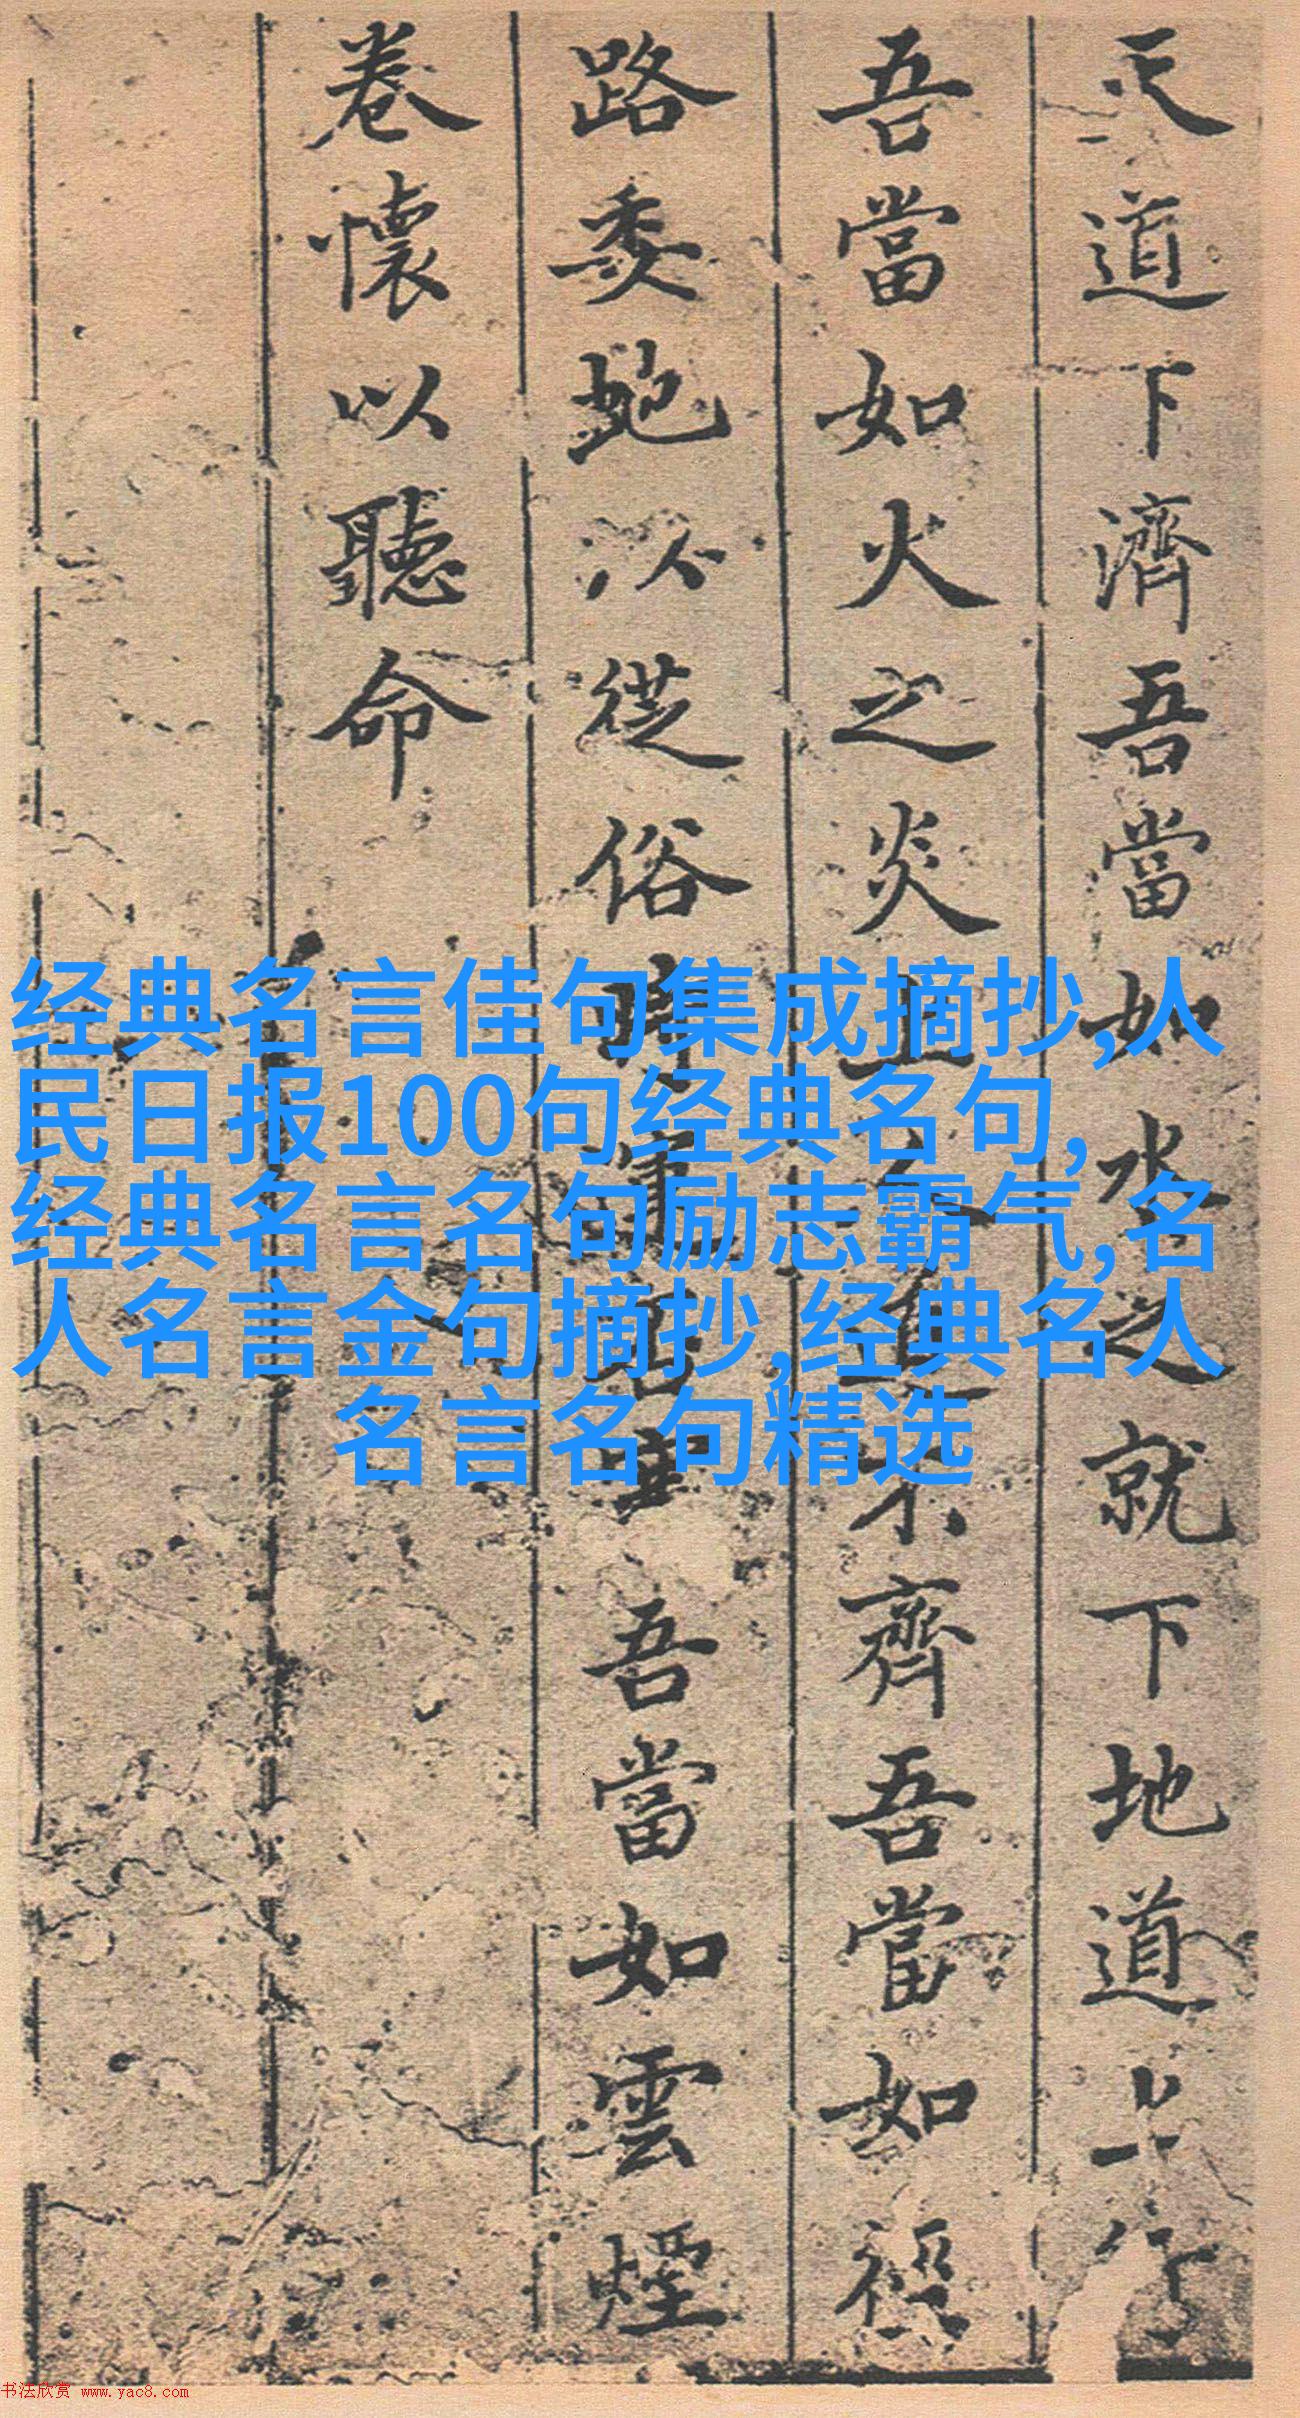 天道下濟吾當如水之就下地道上行
吾當如火之炎上人道不齊吾當如徑
路委虵以從俗時運吾當如雲煙
卷懷以聽命
经典名言佳句集成摘抄,人
民日报100句经典名句,
经典名言名句励志霸气,名
人名言金句摘抄,经典名人
名言名句精选
书法欣赏 www.yac8.com